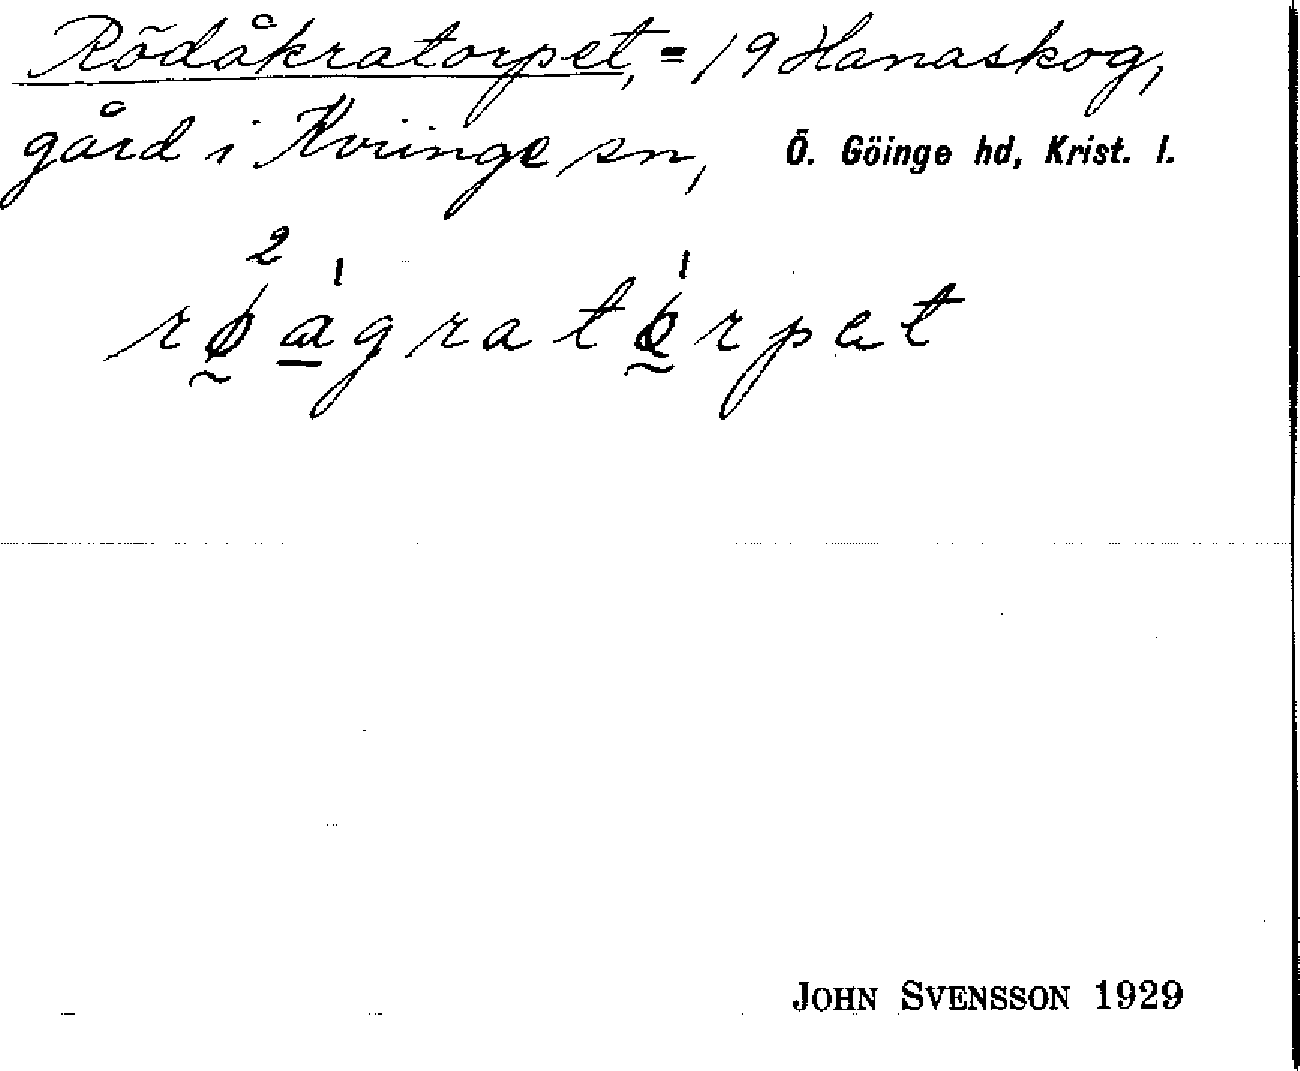 Rödåkratorpet, = 19 Hanaskog,
gård i Kviinge sn, Ö. Göinge hd, Krist. l.
2 1 1
røagratørpet
JOHN SVENSSON 1929